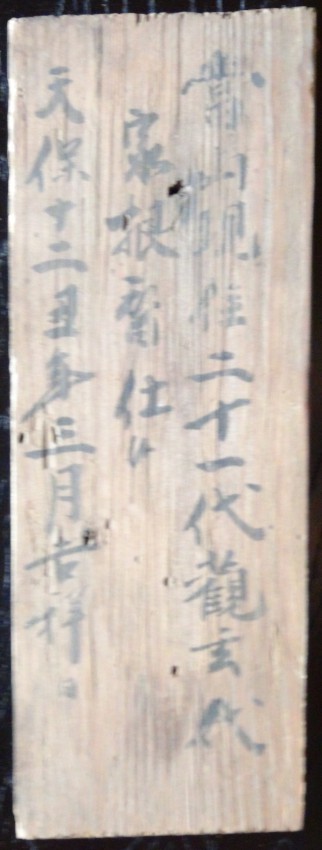 當山現住二十一代觀玄代
家根替仕候
天保十二丑年三月吉祥日